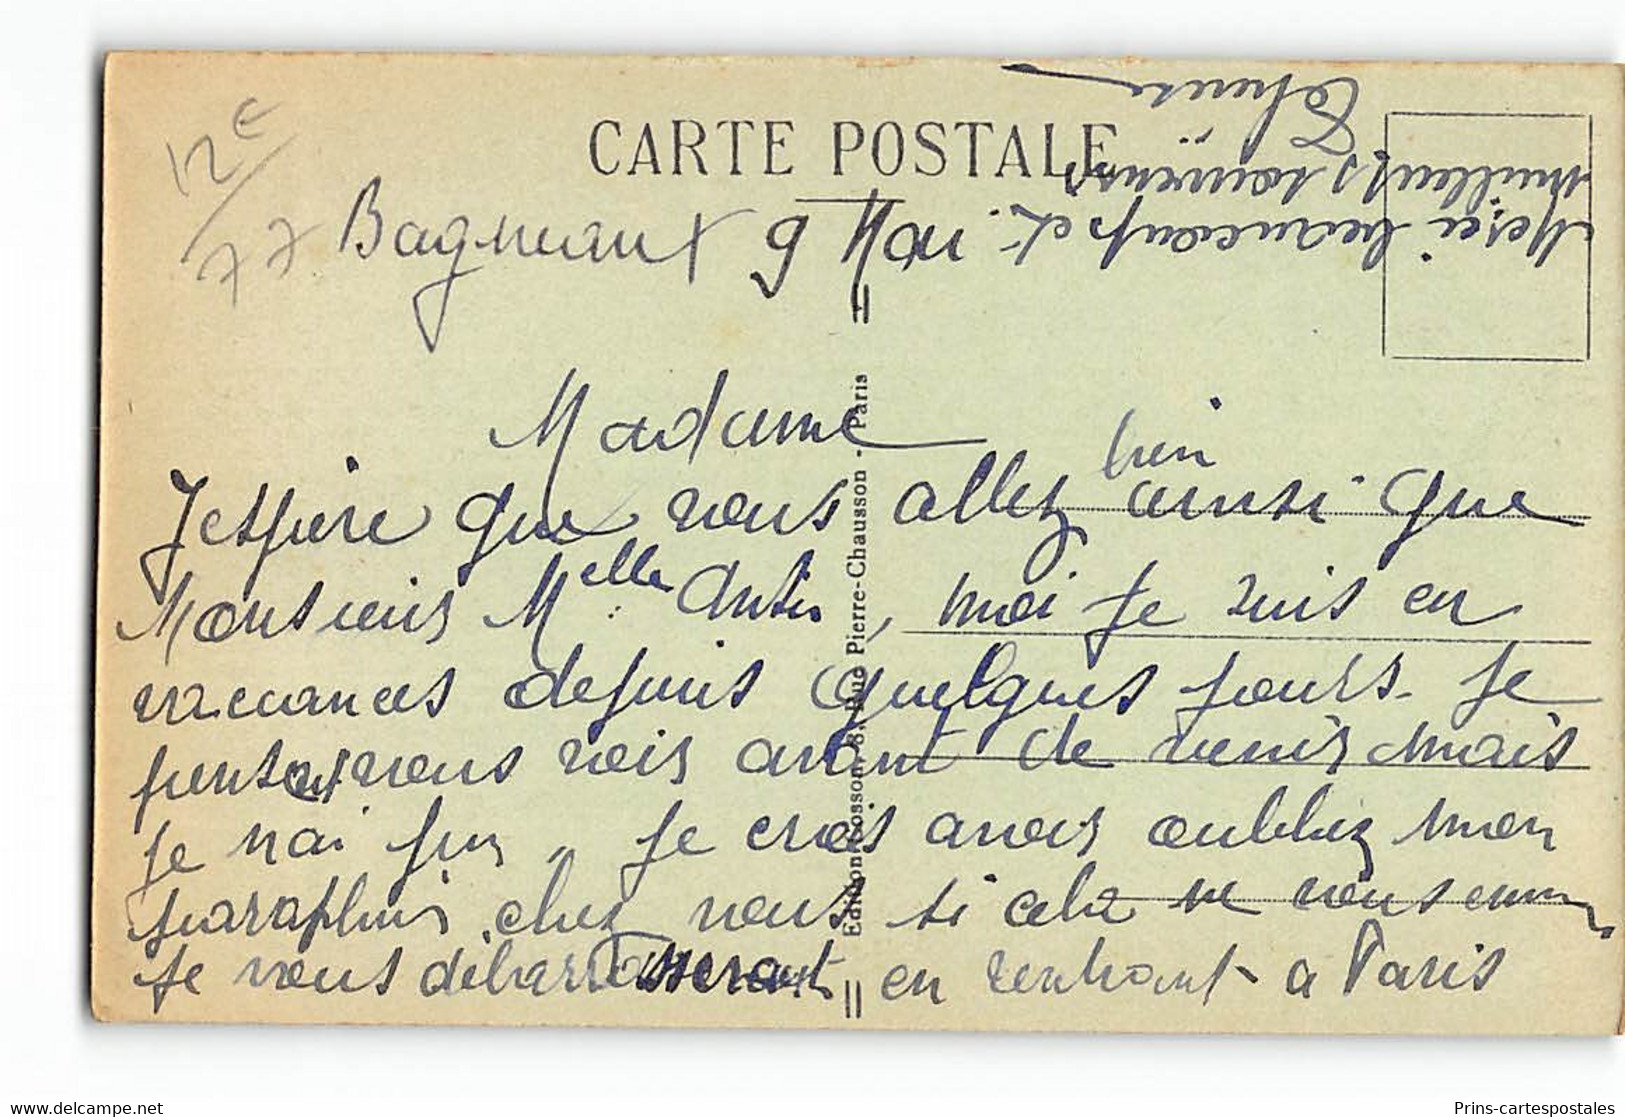 CARTE POSTALE
12E
77
Bagneaux 9 Mai
Madame
J'espère que vous allez bien ainsi que
Monsieur Melle , moi je suis en
vaccances depuis quelques jours. Je
pensais vous voir avant de venir mais
je n'ai pu, je crois avoir oubliez mon
parapluis chez vous si cela ne vous ennui
je vous débarrasserait en rentrant à Paris
Merci beaucoup et
meilleurs souvenirs
Edition Gosson, 8, Rue Pierre-Chausson - Paris
www.delcampe.net
Prins-cartespostales